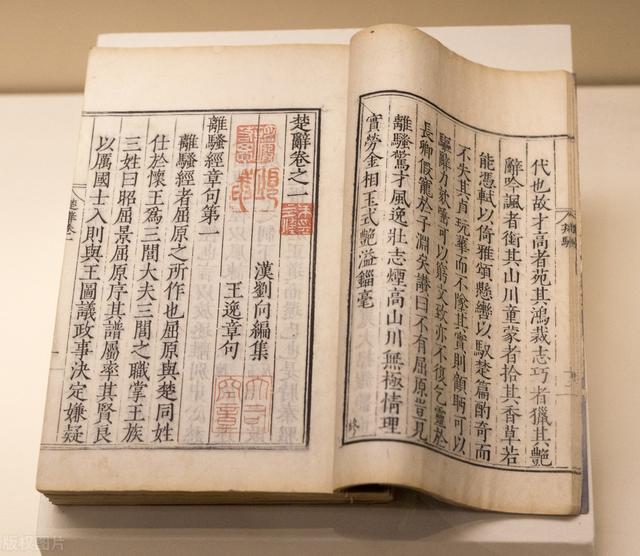 代也故才高者苑其鴻裁志巧者獵其艷
辭吟諷者銜其山川童蒙者拾其香草若
能憑軾以倚雅頌懸轡以馭楚篇酌奇而
不失其貞玩華而不墜其實則顧眄可以
驅辭力欬唾可以窮文致亦不復乞靈於
長卿假寵於子淵矣讚曰不有屈原豈見
離騷驚才風逸壯志煙高山川無極情理
實勞金相玉式艷溢錙毫
終
楚辭卷之一
漢劉向編集
王逸章句
離騷經章句第一
離騷經者屈原之所作也屈原與楚同姓
仕於懷王爲三閭大夫三閭之職掌王族
三姓曰昭屈景屈原序其譜屬率其賢良
以厲國士入則與王圖議政事決定嫌疑
楚辭卷一
版权图片